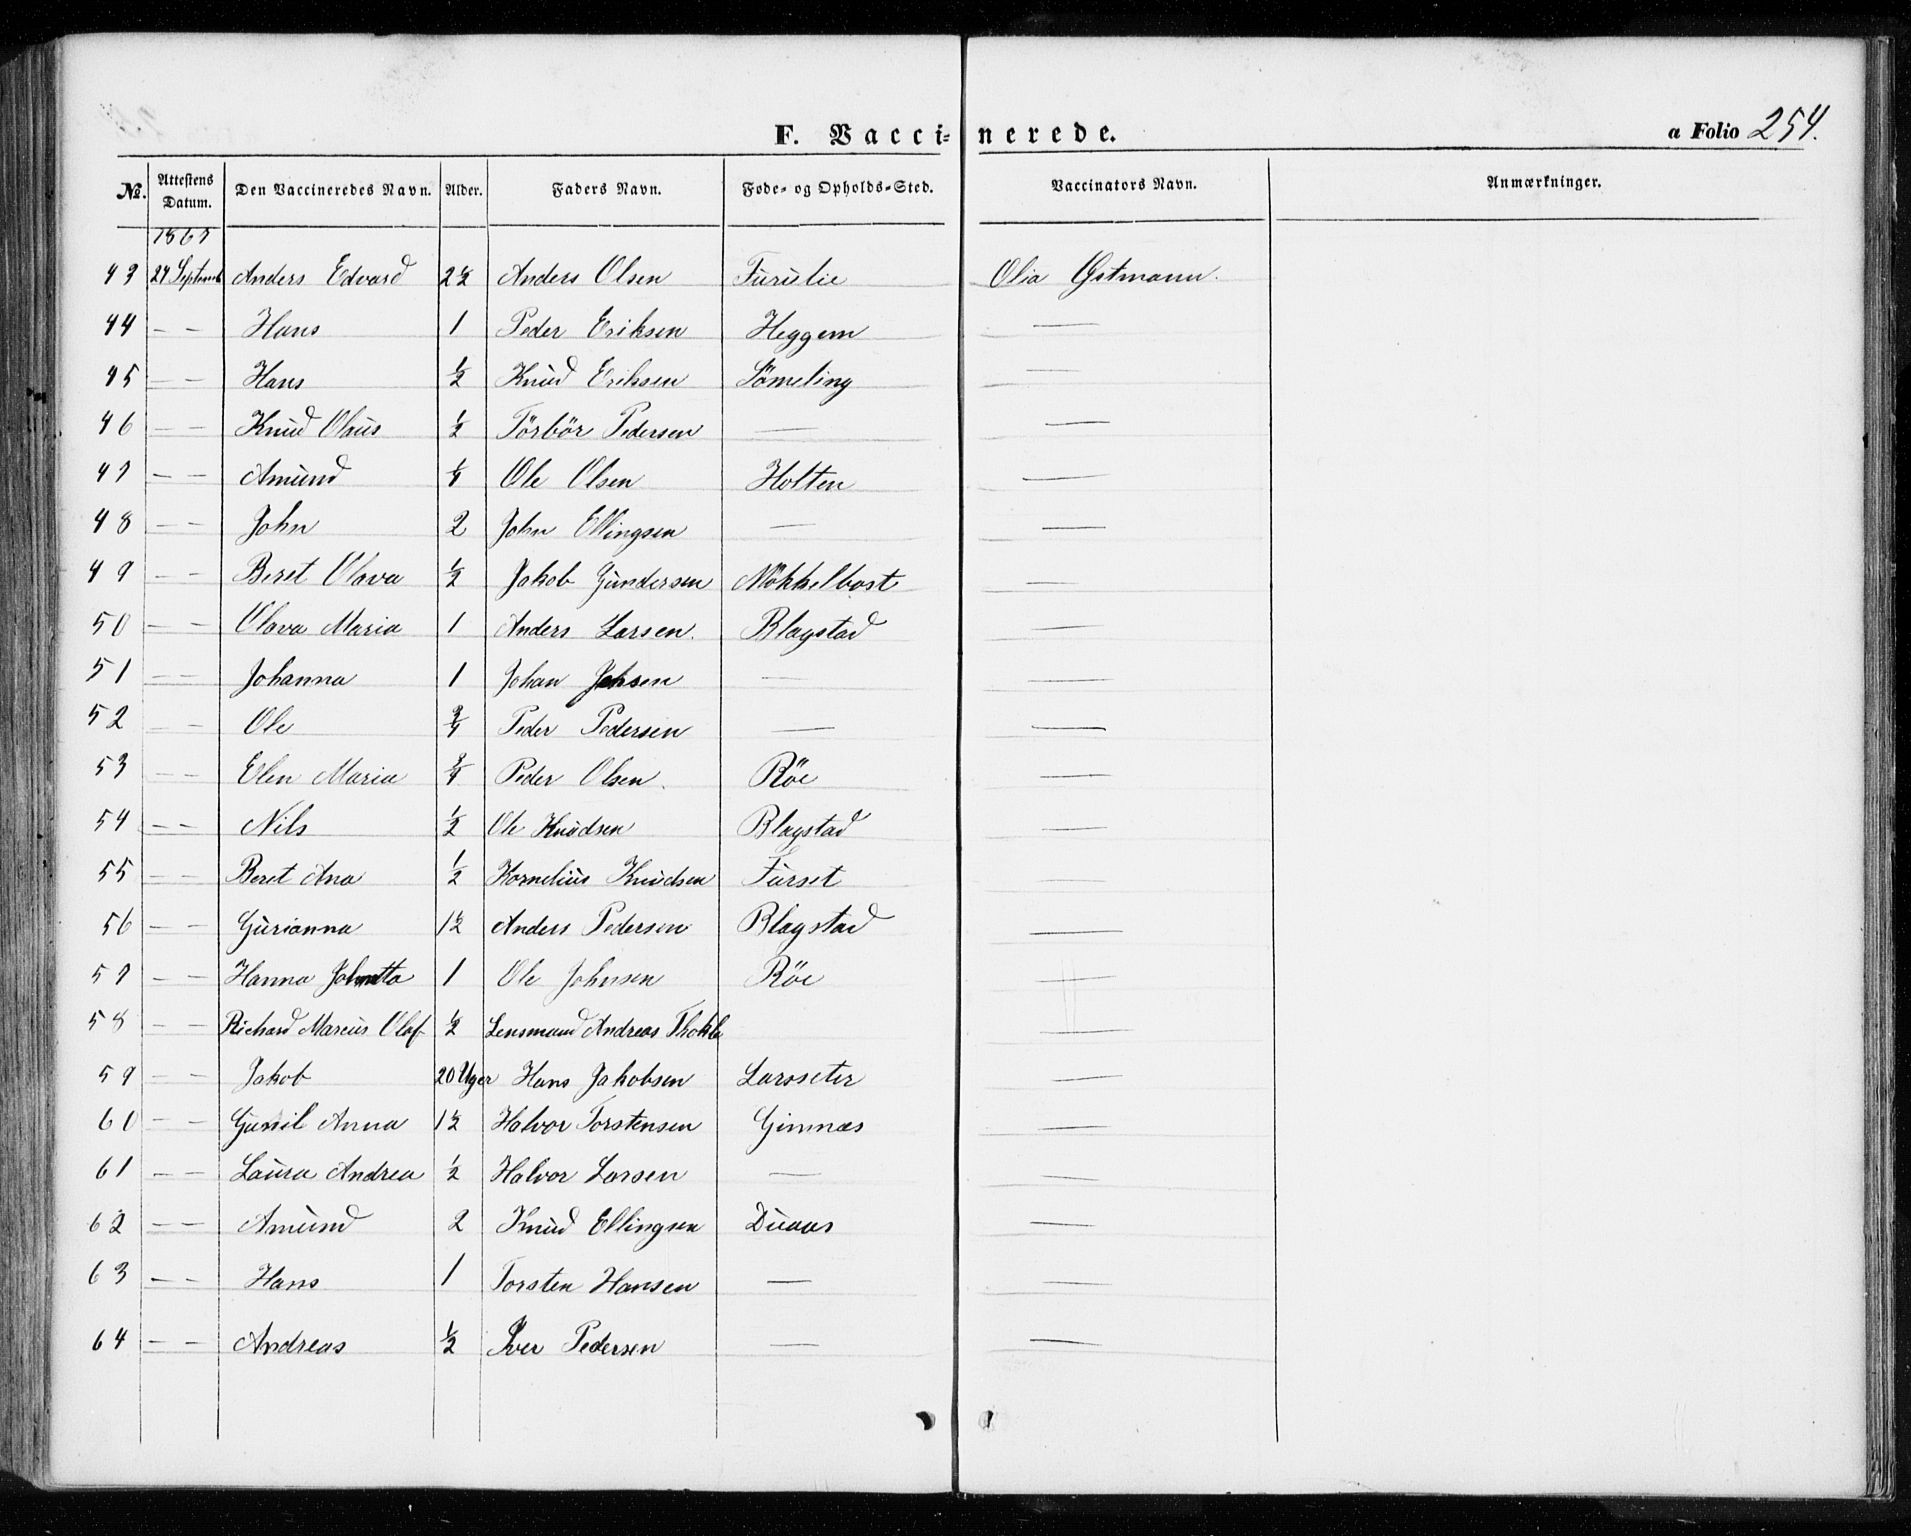 F. Vaccinerede. a Folio 254.
No. Attestens Datum. Den Vaccineredes Navn. Alder. Faders Navn. Fode- og Opholds-Sted. Vaccinators Navn. Anmærkninger.
43 24 Septemb Anders Edvard 2½ Anders Olsen Furulie Olia Østmann.
44 — — Hans 1 Peder Eriksen Heggem —
45 — — Hans ½ Knud Eriksen Sömeling —
46 — — Knud Olaus ½ Törbör Pedersen — —
47 — — Amund ¼ Ole Olsen Holten —
48 — — John 2 John Ellingsen — —
49 — — Beret Olava ½ Jakob Gundersen Nökkelbost —
50 — — Olava Maria 1 Anders Larsen. Blagstad —
51 — — Johanna 1 Johan — —
52 — — Ole ¾ Peder Pedersen — —
53 — — Elen Maria ¾ Peder Olsen. Röe —
54 — — Nils ½ Ole Knudsen Blagstad —
55 — — Beret Ana ½ Kornelius Knudsen Furset —
56 — — Gurianna 1½ Anders Pedersen Blagstad —
57 — — Hanna 1 Ole Johnsen Röe —
58 — — Richard Marcus Olaf ½ Lensmand Andreas —
59 — — Jakob 20 Uger Hans Jakobsen Larsseter —
60 — — Gunil Anna 1½ Halvor Torstensen Gimnæs —
61 — — Laura Andrea ½ Halvor Larsen — —
62 — — Amund 2 Knud Ellingsen Duaas —
63 — — Hans 1 Torsten Hansen — —
64 — — Andreas ½ Iver Pedersen — —